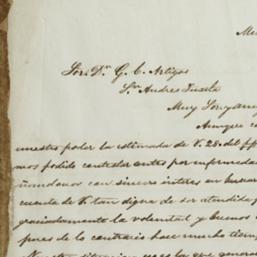 Me
Sor. Dn. G. C. Artigas
Sn. Andres Tuxtla
Muy Sor. y amig
Aunque e
nuestro poder la estimada de V. 28. del pp
mos podido contestar antes por enfermeda
ñandonos con sincero interes en buscar
cuenta de V. tan digna de ser atendida p
graciadamente la voluntad y buenos
pues de lo contrario hace mucho tiemp
que genera